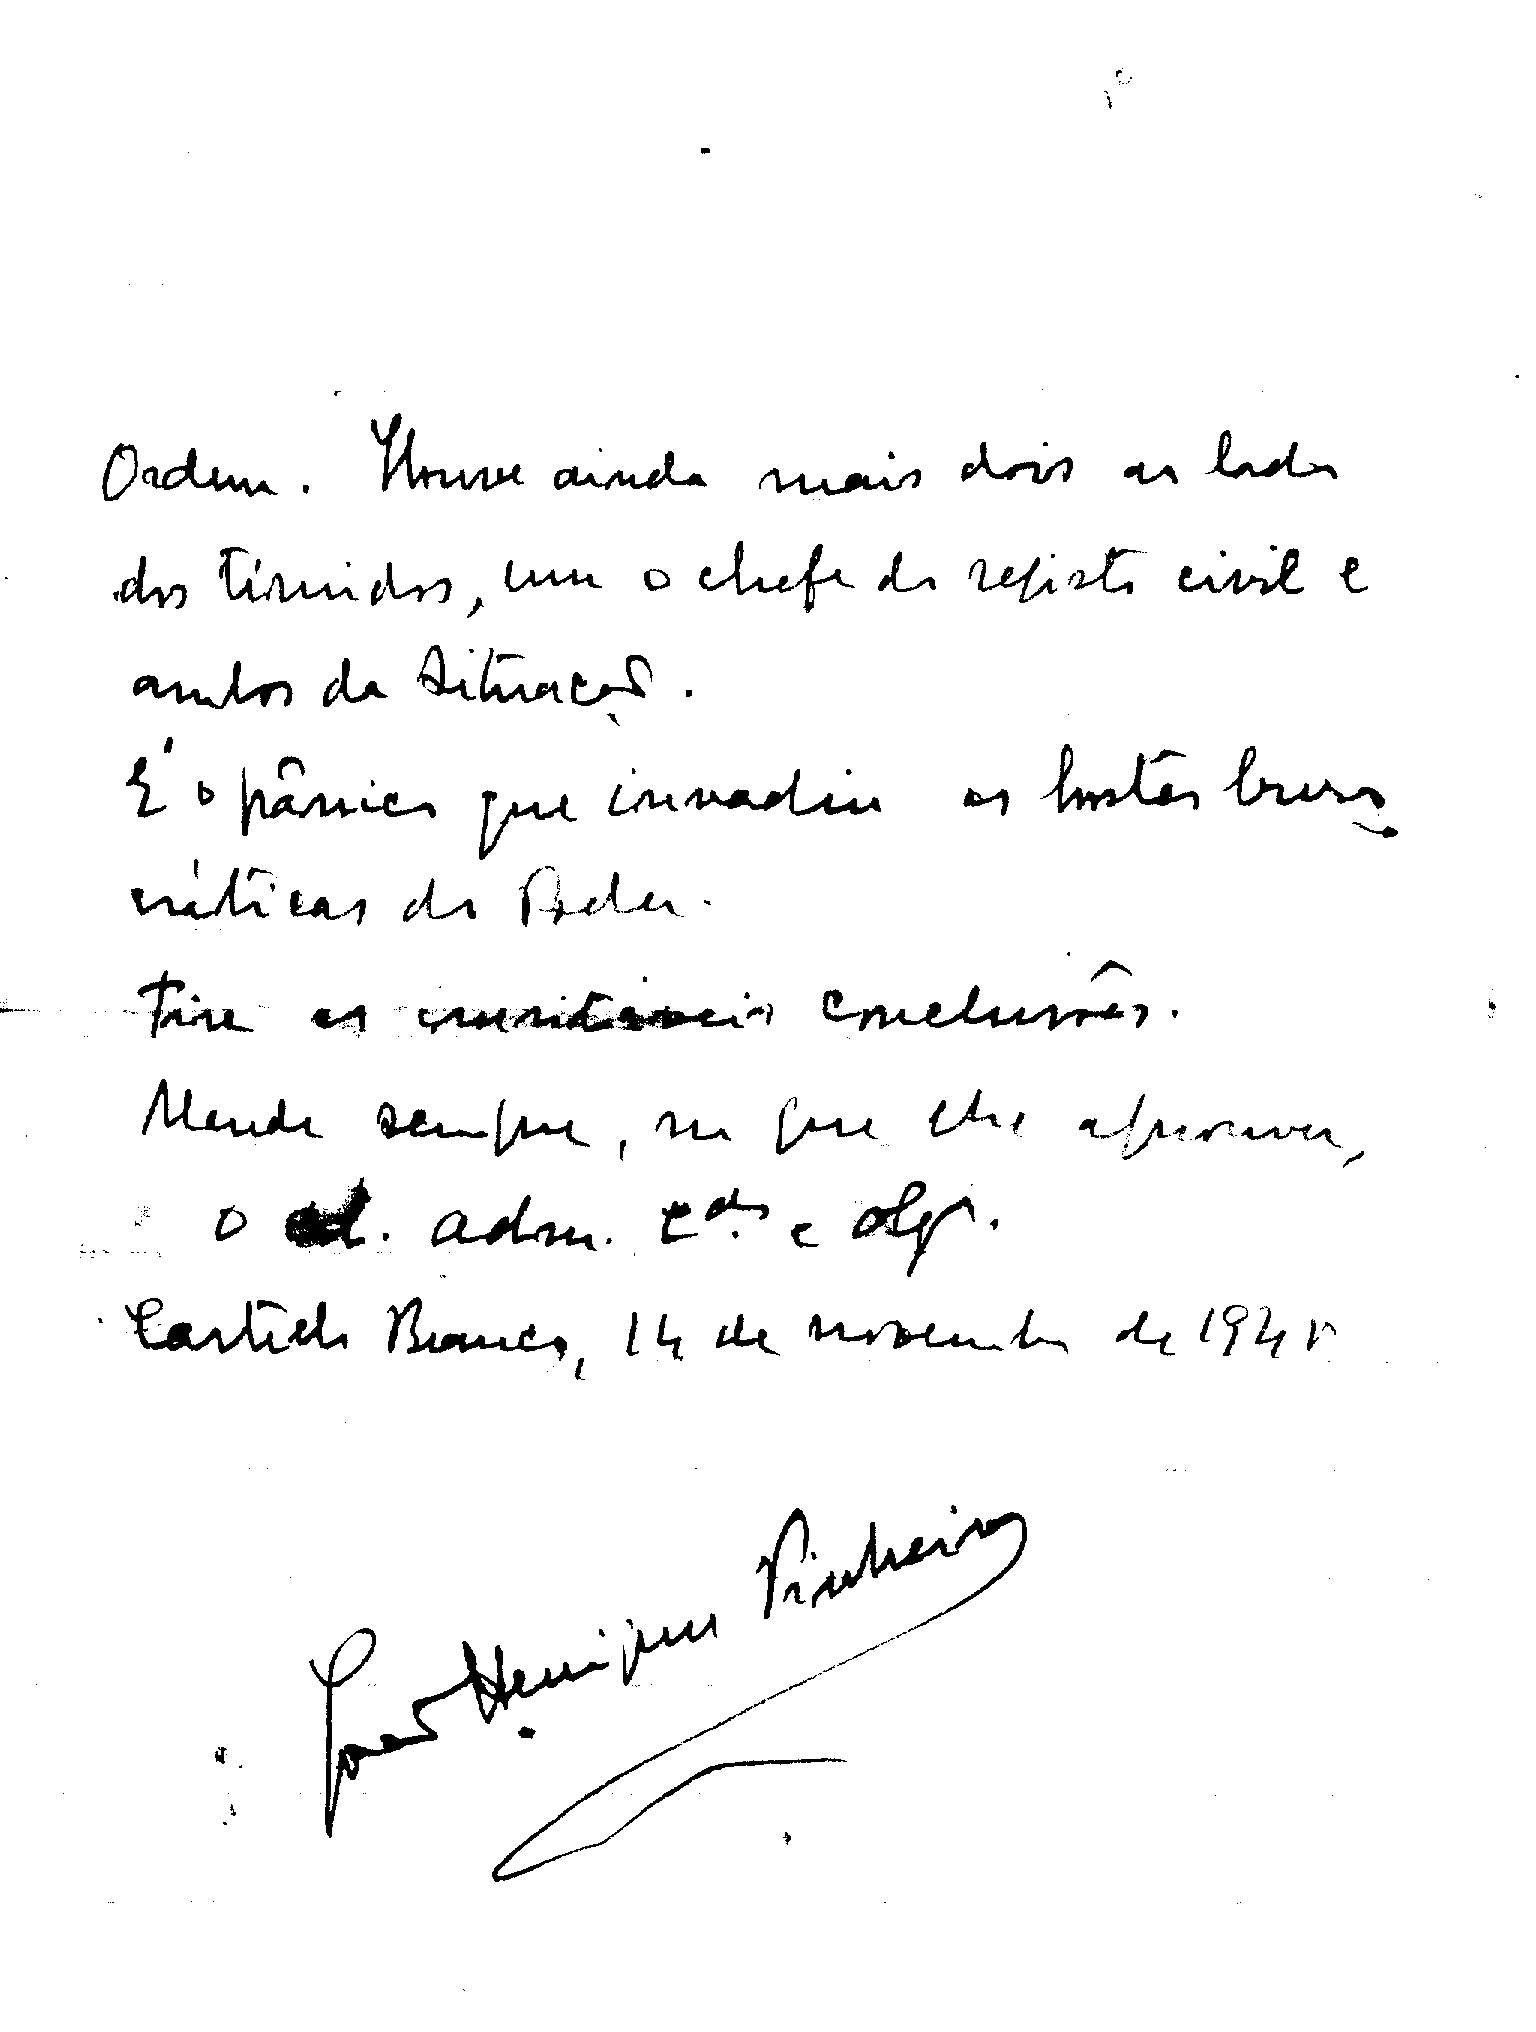 Ordem. Houve ainda mais dois ao lado
dos tímidos, um o chefe do registo civil e
ambos da Situação.
É o pânico que invadiu as hostes buro-
cráticas do Poder.
Tire as inevitáveis conclusões.
Mande sempre, no que lhe aprouver,
o adm. cdo. e obg.
Castelo Branco, 14 de novembro de 1945
João Henriques Pinheiro